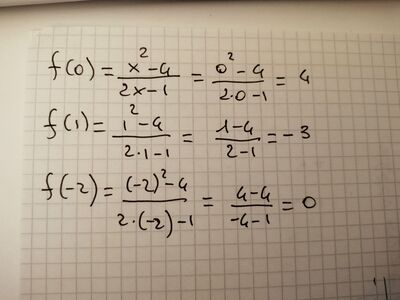 f(0) = (x² - 4)/(2x - 1) = (0² - 4)/(2·0 - 1) = 4
f(1) = (1² - 4)/(2·1 - 1) = (1 - 4)/(2 - 1) = -3
f(-2) = ((-2)² - 4)/(2·(-2) - 1) = (4 - 4)/(-4 - 1) = 0